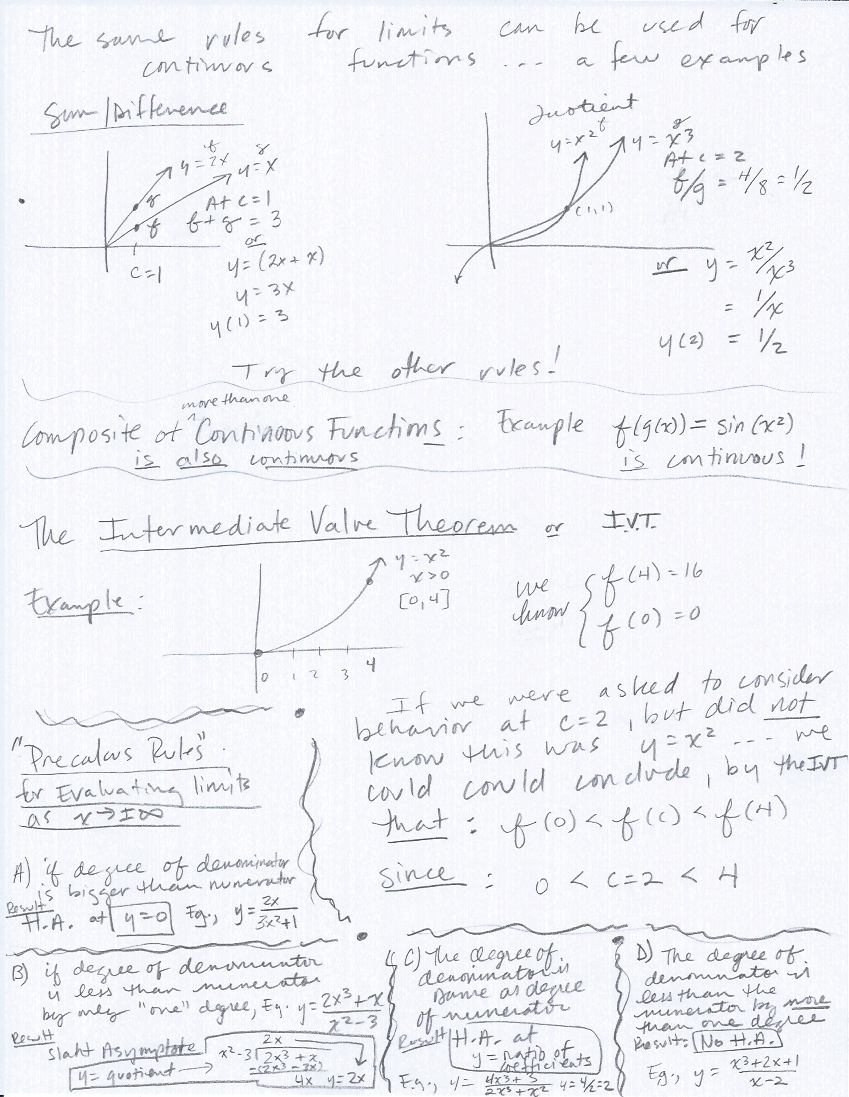 The same rules for limits can be used for
continuous functions ... a few examples
Sum/Difference
f
y=2x
g
y=x
g
f
At c=1
f+g = 3
or
c=1
y=(2x+x)
y=3x
y(1) = 3
Quotient
f
y=x²
g
y=x³
At c=2
f/g = 4/8 = 1/2
(1,1)
or y = x²/x³
= 1/x
y(2) = 1/2
Try the other rules!
more than one
Composite of ^ Continuous Functions: Example f(g(x)) = sin(x²)
is also continuous is continuous!
The Intermediate Value Theorem or I.V.T.
Example:
y=x²
x>0
[0,4]
0 1 2 3 4
we know { f(4)=16
f(0)=0
If we were asked to consider
behavior at c=2, but did not
know this was y=x² ... we
could could conclude, by the IVT
that: f(0) < f(c) < f(4)
since: 0 < c=2 < 4
"Precalcus Rules"
for Evaluating limits
as x→±∞
A) if degree of denominator
is bigger than numerator
Result
H.A. at y=0 Eg., y= 2x/3x²+1
B) if degree of denominator
is less than numerator
by only "one" degree, Eg. y= 2x³+x/x²-3
Result
Slant Asymptote
y= quotient →
2x
x²-3 2x³+x
-(2x³-3x)
4x y=2x
C) The degree of
denominator is
same as degree
of numerator
Result H.A. at
y= ratio of
coefficients
E.g., y= 4x³+3/2x³+x² y=4/2=2
D) The degree of
denominator is
less than the
numerator by more
than one degree
Result: No H.A.
Eg., y = x³+2x+1/x-2